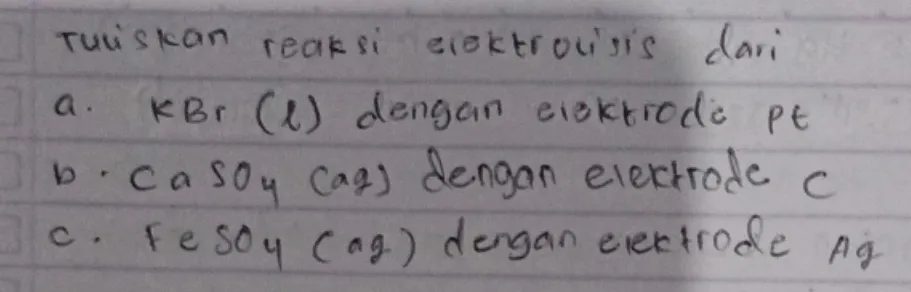 Tuliskan reaksi elektrolisis dari
a. KBr (l) dengan elektrode Pt
b. CaSO4 (aq) dengan elektrode C
c. FeSO4 (aq) dengan elektrode Ag